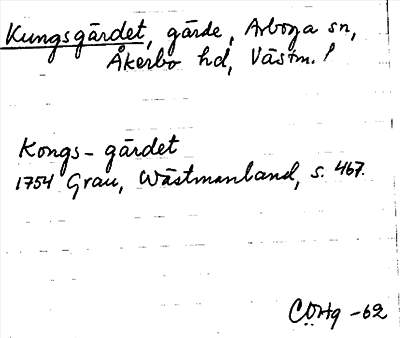 Kungsgärdet, gärde, Arboga sn,
Åkerbo hd, Västm. l
Kongs-gärdet
1754 Grau, Wästmanland, s. 467.
CÖHg -62